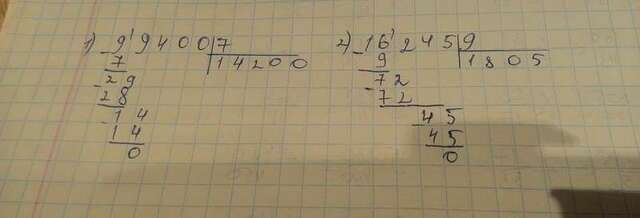 1) 99400 7
7 14200
29
28
14
14
0
2) 16245 9
9 1805
72
72
45
45
0